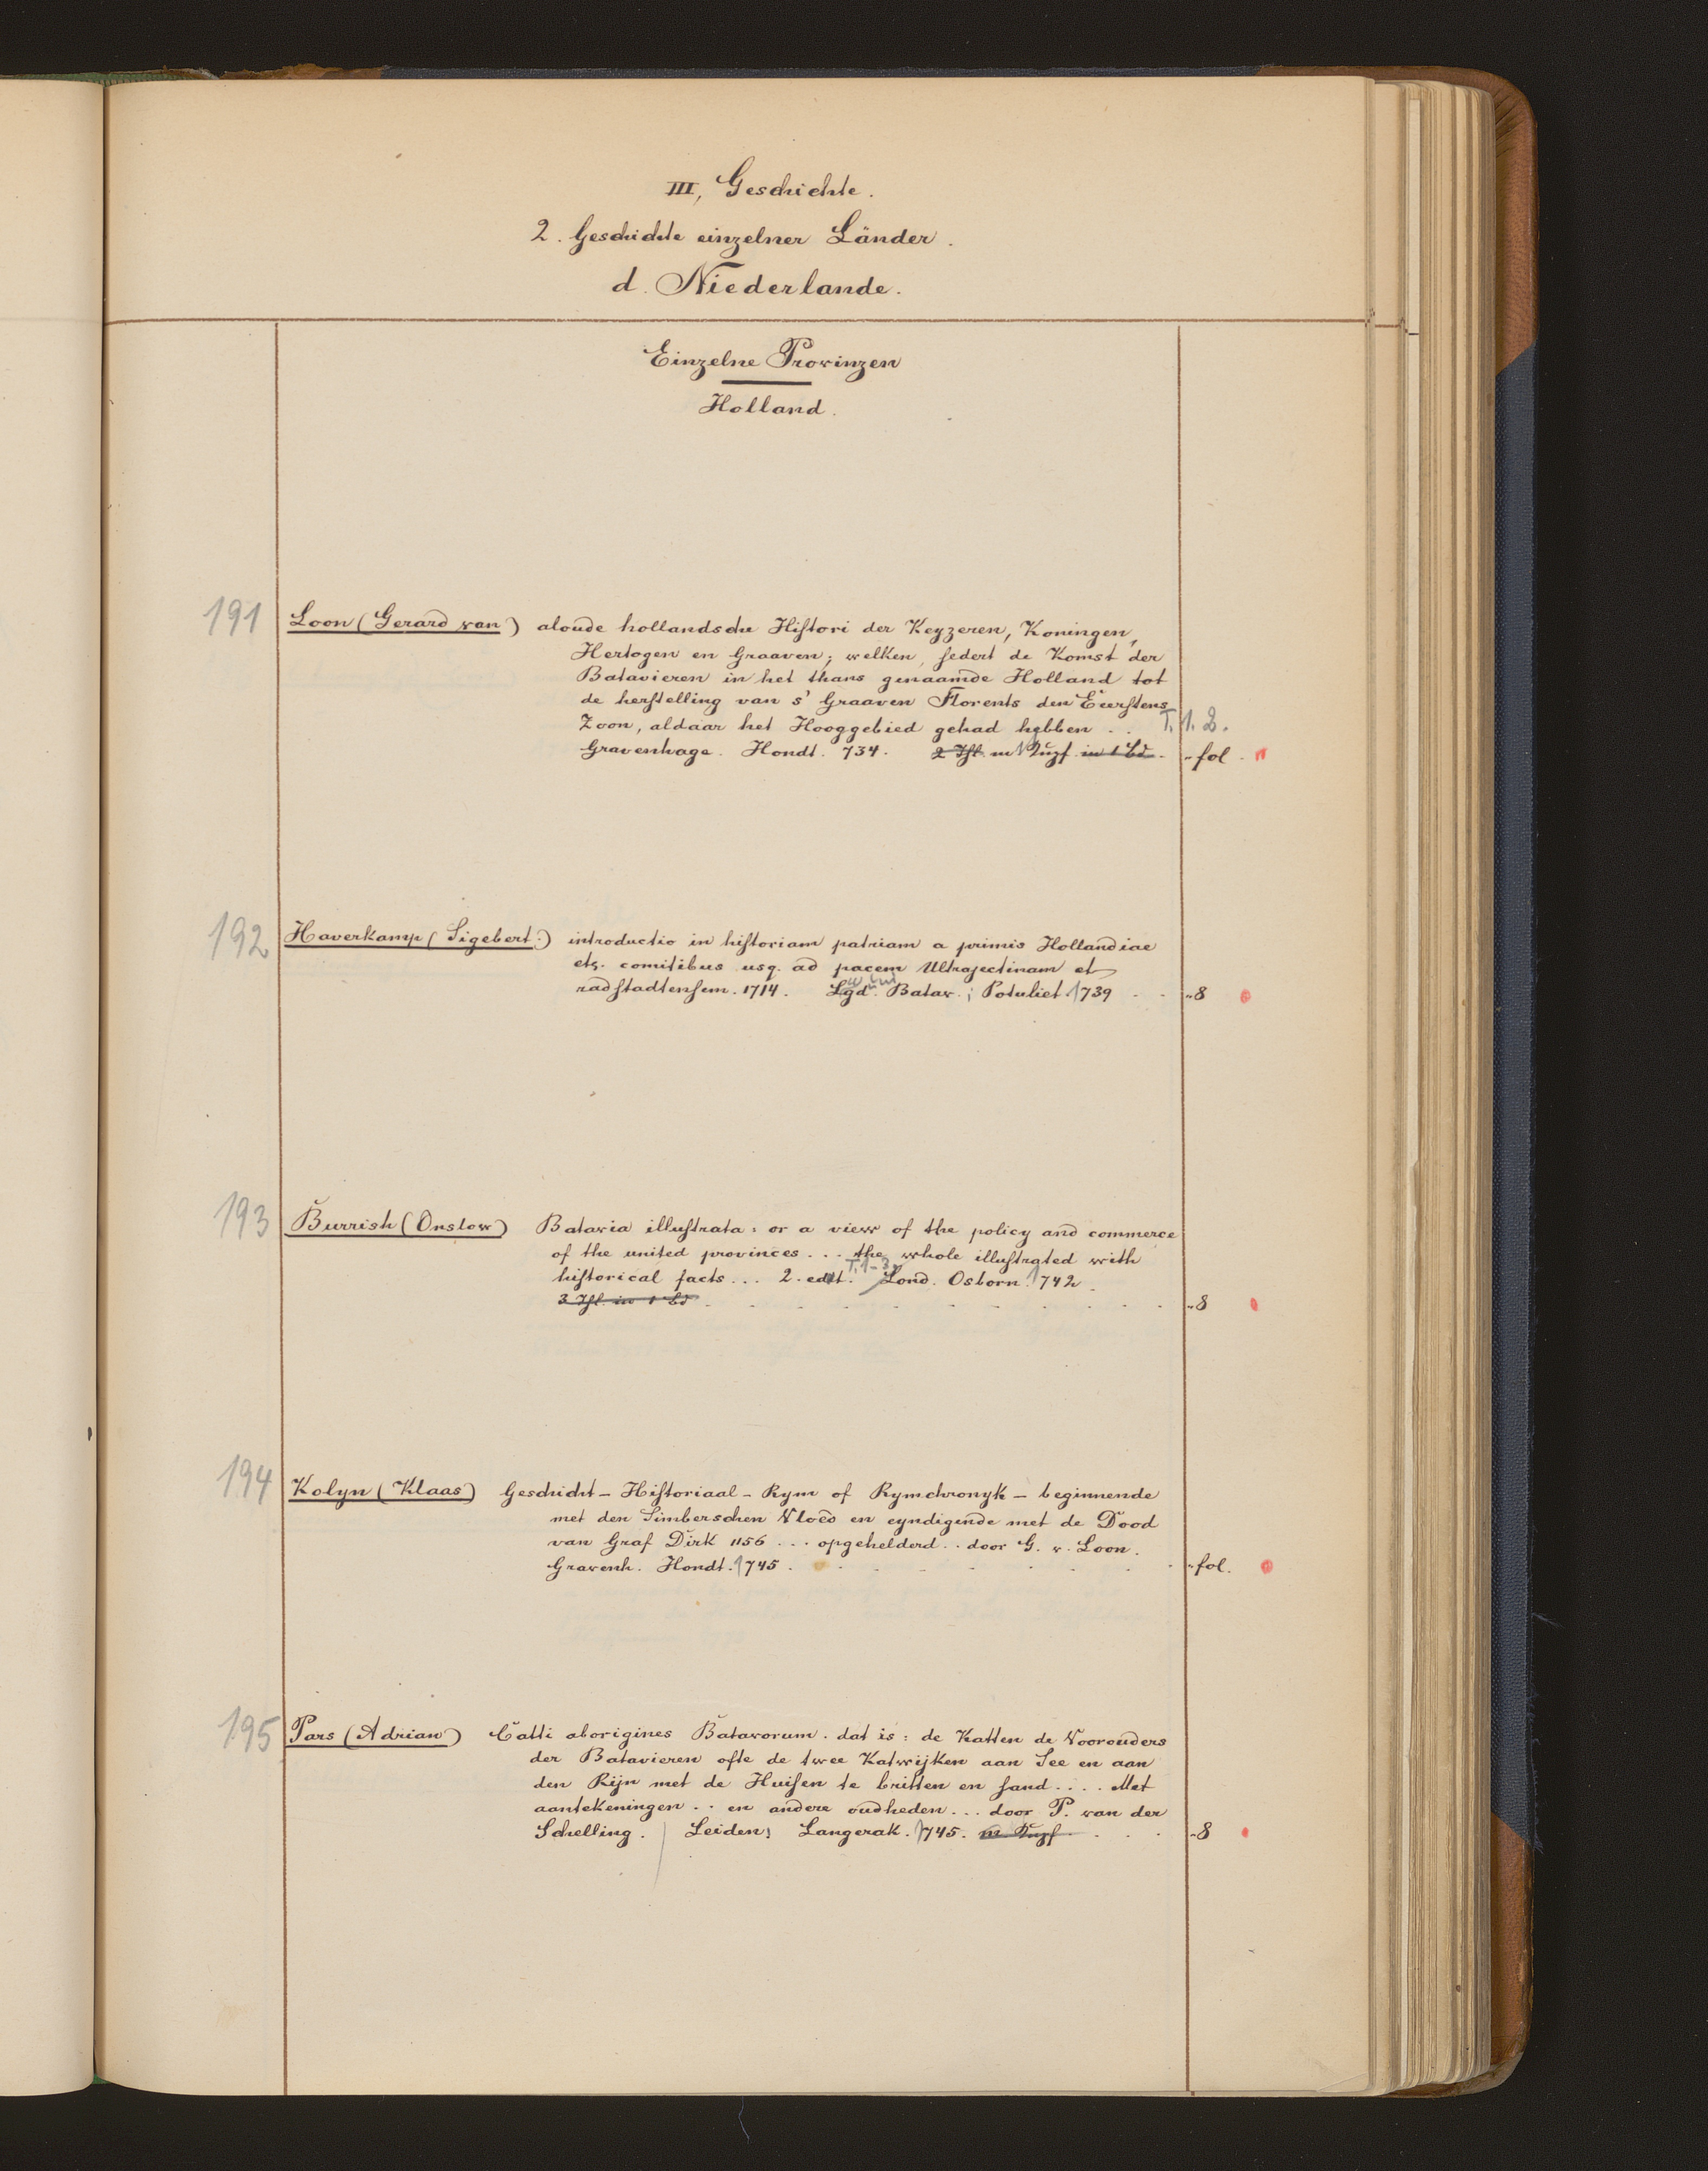 III, Geschichte.
2. Geschichte einzelner Länder.
d. Niederlande.
Einzelne Provinzen
Holland.
191 Loon (Gerard van) aloude hollandsche Histori der Keyzeren, Koningen,
Hertogen en Graaven; welken, sedert de Komst der
Batavieren in het thans genaamde Holland tot
de herstelling van s' Graaven Florents den Eersten
Zoon, aldaar het Hooggebied gehad hebben . . T. 1. 2.
Gravenhage. Hondt. 734. 2 Thl. m Kupf. in 1 Bd. „fol.
192 Haverkamp (Sigebert.) introductio in historiam patriam a primis Hollandiae
etz. comitibus usq. ad pacem Ultrajectinam et
radstadtensem. 1714. Lgd. Batav.; Potuliet 1739 . . „8
193 Burrish (Onslow) Batavia illustrata: or a view of the policy and commerce
of the united provinces . . . the whole illustrated with
historical facts . . . 2. edit. T. 1-3. Lond. Osborn. 1742.
3 Thl. in 1 Bd. „8
194 Kolyn (Klaas) Geschicht-Historiaal-Rym of Rymchronyk - beginnende
met den Simberschen Vloed en eyndigende met de Dood
van Graf Dirk 1156 . . . opgehelderd . . door G. v. Loon.
Gravenh. Hondt. 1745. „fol.
195 Pars (Adrian) Catti aborigines Batavorum. dat is: de Katten de Voorouders
der Batavieren ofte de twee Katwijken aan See en aan
den Rijn met de Huisen te britten en sand . . . . Met
aantekeningen . . en andere oudheden . . . door P. van der
Schelling. / Leiden; Langerak. 1745. m Kupf. „8